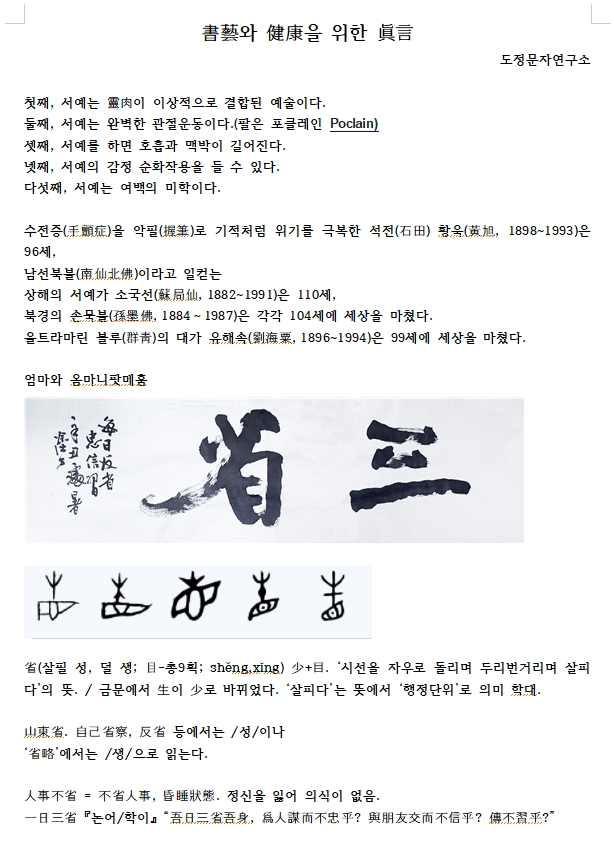 書藝와 健康을 위한 眞言
도정문자연구소
첫째, 서예는 靈肉이 이상적으로 결합된 예술이다.
둘째, 서예는 완벽한 관절운동이다.(팔은 포클레인 Poclain)
셋째, 서예를 하면 호흡과 맥박이 길어진다.
넷째, 서예의 감정 순화작용을 들 수 있다.
다섯째, 서예는 여백의 미학이다.
수전증(手顫症)을 악필(握筆)로 기적처럼 위기를 극복한 석전(石田) 황욱(黃旭, 1898~1993)은
96세,
남선북불(南仙北佛)이라고 일컫는
상해의 서예가 소국선(蘇局仙, 1882~1991)은 110세,
북경의 손묵불(孫墨佛, 1884 ~ 1987)은 각각 104세에 세상을 마쳤다.
울트라마린 블루(群靑)의 대가 유해속(劉海粟, 1896~1994)은 99세에 세상을 마쳤다.
엄마와 옴마니팟메훔
三省
每日反省
忠信習
辛丑處暑
省(살필 성, 덜 생; 目-총9획; shěng,xǐng) 少+目. ‘시선을 좌우로 돌리며 두리번거리며 살피
다’의 뜻. / 금문에서 生이 少로 바뀌었다. ‘살피다’는 뜻에서 ‘행정단위’로 의미 확대.
山東省. 自己省察, 反省 등에서는 /성/이나
‘省略’에서는 /생/으로 읽는다.
人事不省 = 不省人事, 昏睡狀態. 정신을 잃어 의식이 없음.
一日三省『논어/학이』“吾日三省吾身, 爲人謀而不忠乎? 與朋友交而不信乎? 傳不習乎?”